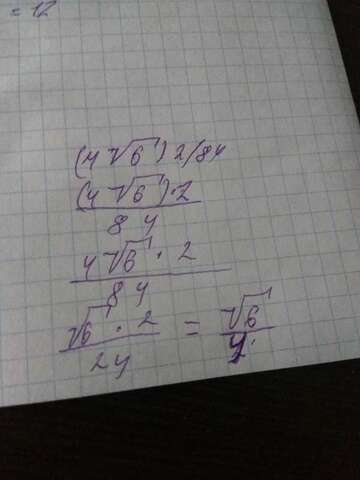 = 12
(4 √6) 2/84
(4 √6)·2
8 4
4 √6 · 2
8 4
√6 · 2 = √6
24 4